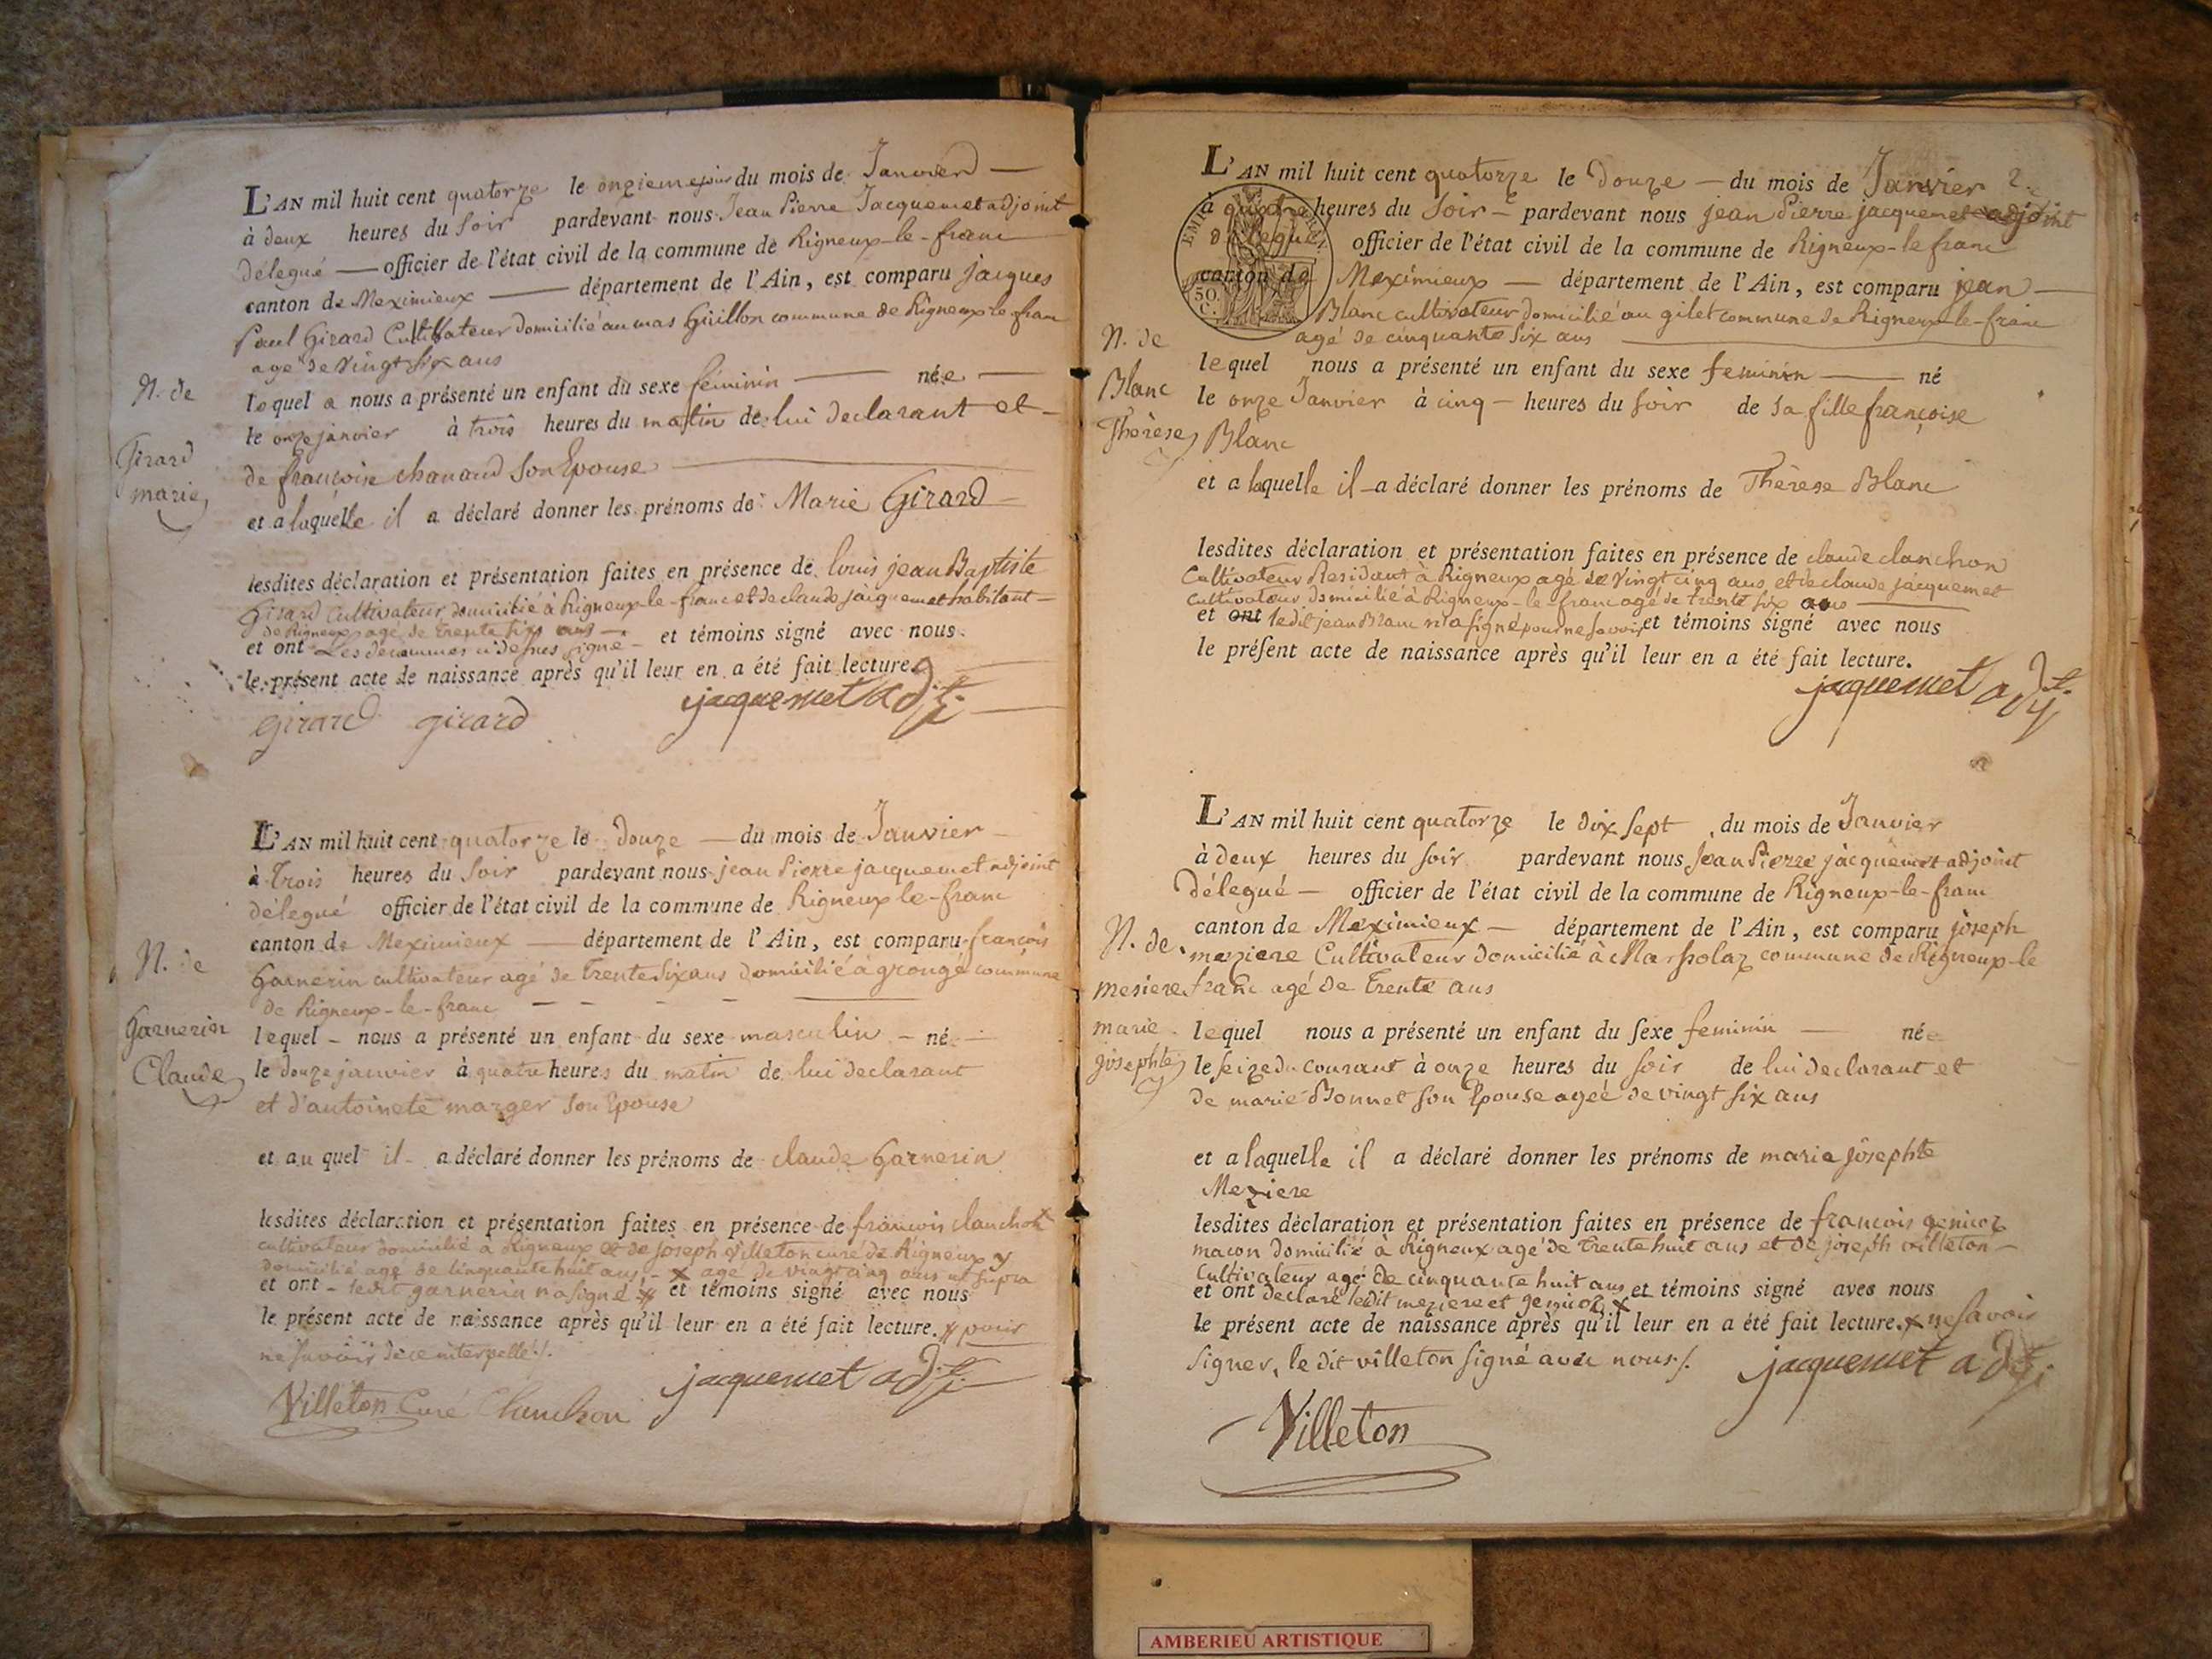 L'AN mil huit cent quatorze le onzieme jour du mois de Janvier
à deux heures du soir pardevant nous Jean Pierre Jacquemet adjoint
délegué officier de l'état civil de la commune de Rigneux-le-franc
canton de Meximieux département de l'Ain, est comparu jacques
Paul Girard Cultivateur domicilié au mas Guillon commune de Rigneux le franc
agé de vingt six ans
N. de
Girard
marie
lequel a nous a présenté un enfant du sexe féminin née
le onze janvier à trois heures du matin de lui declarant et
de françoise chanand son Epouse
et a laquelle il a déclaré donner les prénoms de Marie Girard
lesdites déclaration et présentation faites en présence de louis jean Baptiste
Girard cultivateur domicilié à Rigneux-le-franc et de claude jacquemet habitant
de Rigneux agé de trente six ans
et ont Les denommés signé et témoins signé avec nous
le présent acte de naissance après qu'il leur en a été fait lecture.
girard girard jacquemet adjt.
L'AN mil huit cent quatorze le douze du mois de Janvier
à trois heures du soir pardevant nous jean Pierre jacquemet adjoint
délegué officier de l'état civil de la commune de Rigneux le-franc
canton de Meximieux département de l'Ain, est comparu françois
Garnerin cultivateur agé de trente six ans domicilié à grougé commune
de Rigneux-le-franc
N. de
Garnerin
Claude
lequel nous a présenté un enfant du sexe masculin né
le douze janvier à quatre heures du matin de lui declarant
et d'antoinete marger son Epouse
et au quel il a déclaré donner les prénoms de claude Garnerin
lesdites déclaration et présentation faites en présence de francois clanchon
cultivateur domicilié a Rigneux et de joseph villeton curé de Rigneux y
domicilié agé de cinquante huit ans x agé de vingt cinq ans ut supra
et ont ledit garnerin n'a signé et témoins signé avec nous
le présent acte de naissance après qu'il leur en a été fait lecture. pour
ne savoir de ce interpellé
Villeton Curé Clanchon jacquemet adjt.
L'AN mil huit cent quatorze le douze du mois de Janvier 2.
à quatre heures du soir pardevant nous jean Pierre jacquemet adjoint
délegué officier de l'état civil de la commune de Rigneux-le franc
canton de Meximieux département de l'Ain, est comparu jean
EMP. FRAN.
50.
C.
Blanc cultivateur domicilié au gilet commune de Rigneux-le-franc
agé de cinquante six ans
N. de
Blanc
Thérèse
lequel nous a présenté un enfant du sexe feminin né
le onze Janvier à cinq heures du soir de sa fille françoise
Blanc
et a laquelle il a déclaré donner les prénoms de Thérèse Blanc
lesdites déclaration et présentation faites en présence de claude clanchon
Cultivateur Residant à Rigneux agé de vingt cinq ans et de claude jacquemet
cultivateur domicilié à Rigneux-le-franc agé de trente six ans
et ont ledit jean Blanc n'a signé pour ne savoir et témoins signé avec nous
le présent acte de naissance après qu'il leur en a été fait lecture.
jacquemet adjt.
L'AN mil huit cent quatorze le dix sept du mois de Janvier
à deux heures du soir pardevant nous Jean Pierre jacquemet adjoint
délegué officier de l'état civil de la commune de Rigneux-le-franc
canton de Meximieux département de l'Ain, est comparu joseph
meziere Cultivateur domicilié à Marsolaz commune de Rigneux-le
franc agé de trente ans
N. de
mesiere
marie
josephte
lequel nous a présenté un enfant du sexe feminin née
le seize du courant à onze heures du soir de lui declarant et
de marie Bonnet son Epouse ageé de vingt six ans
et a laquelle il a déclaré donner les prénoms de marie josephte
Meziere
lesdites déclaration et présentation faites en présence de francois genicoz
macon domicilié à Rigneux agé de trente huit ans et de joseph villeton
Cultivateur agé de cinquante huit ans et témoins signé avec nous
et ont declaré ledit meziere et genicoz x
le présent acte de naissance après qu'il leur en a été fait lecture. x ne savoir
signer, le dit villeton signé avec nous
jacquemet adjt.
Villeton
AMBERIEU ARTISTIQUE